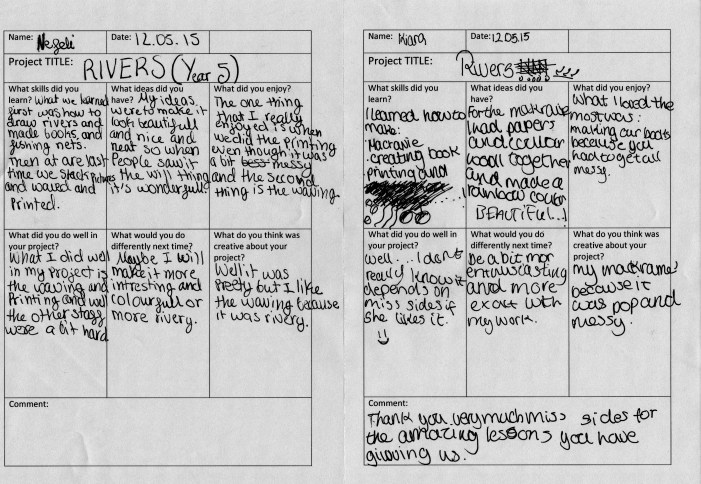 Name: Negeli
Date: 12.05.15
Project TITLE: RIVERS (Year 5)
What skills did you
learn? What we learned
first was how to
draw rivers and
made books, and
fishing nets.
Then at are last
time we stack pictures
and waved and
Printed.
What ideas did you
have? My ideas
were to make it
look beautifull
and nice and
neat so when
People saw it
the will thing
it's wonderfull!
What did you enjoy?
The one thing
that I really
enjoyed is when
we did the printing
even though it was
a bit messy
and the second
thing is the waving
What did you do well in
your project?
What I did well
in my project is
the waving and
Printing and well
the other stagg
were a bit hard
What would you do
differently next time?
Maybe I will
make it more
intresting and
colourfull or
more rivery.
What do you think was
creative about your
project?
Well it was
Prety but I like
the waving because
it was rivery.
Comment:
Name: Kiara
Date: 12.05.15
Project TITLE: Rivers
What skills did you
learn?
I learned how to
make:
Macramie
creating book
printing and
What ideas did you
have?
For the makramie
I had papers
and colour
wooll together
and made a
rainbow colour
BEAUTIFUL..!
What did you enjoy?
What I loved the
most was:
making our books
because you
had to get all
messy.
What did you do well in
your project?
Well... I don't
really know it
depends on
miss sides if
she likes it.
What would you do
differently next time?
Be a bit mor
and more
exact with
my work.
What do you think was
creative about your
project?
my mackrame
because it
was pop and
messy.
Comment:
Thank you very much miss sides for
the amazing lessons you have
giuving us.